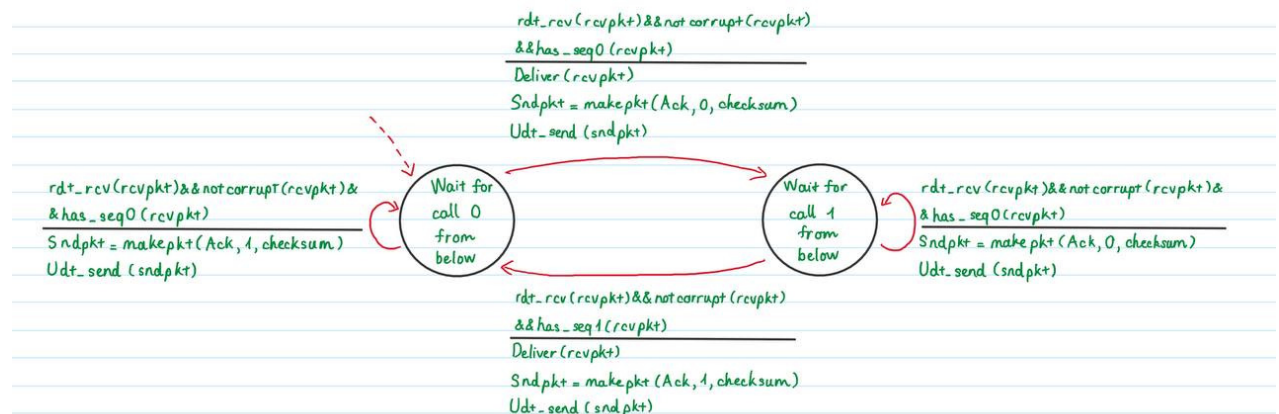 rdt_rcv(rcvpkt)&&not corrupt(rcvpkt)
&&has_seq0(rcvpkt)
Deliver(rcvpkt)
Sndpkt = makepkt(Ack, 0, checksum)
Udt_send (sndpkt)
rdt_rcv(rcvpkt)&&notcorrupt(rcvpkt)&
&has_seq0(rcvpkt)
Sndpkt = makepkt(Ack, 1, checksum)
Udt_send (sndpkt)
Wait for
call 0
from
below
Wait for
call 1
from
below
rdt_rcv(rcvpkt)&&notcorrupt(rcvpkt)&
&has_seq0(rcvpkt)
Sndpkt = makepkt(Ack, 0, checksum)
Udt_send (sndpkt)
rdt_rcv(rcvpkt)&&notcorrupt(rcvpkt)
&&has_seq1(rcvpkt)
Deliver(rcvpkt)
Sndpkt = makepkt(Ack, 1, checksum)
Udt_send (sndpkt)